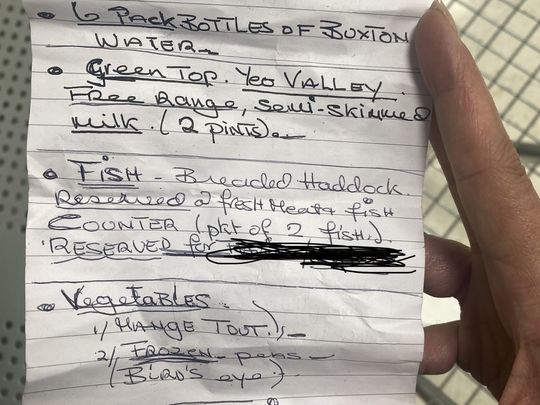 • 6 Pack Bottles of Buxton
Water –
• Green Top. Yeo Valley.
Free Range, semi-skimmed
milk. (2 pints). –
• Fish - Breaded Haddock.
Reserved @ fresh Meat & fish
Counter (pkt of 2 fish).
Reserved for
• Vegetables:
1/ Mange Tout. –
2/ Frozen – peas –
(Bird's eye.)